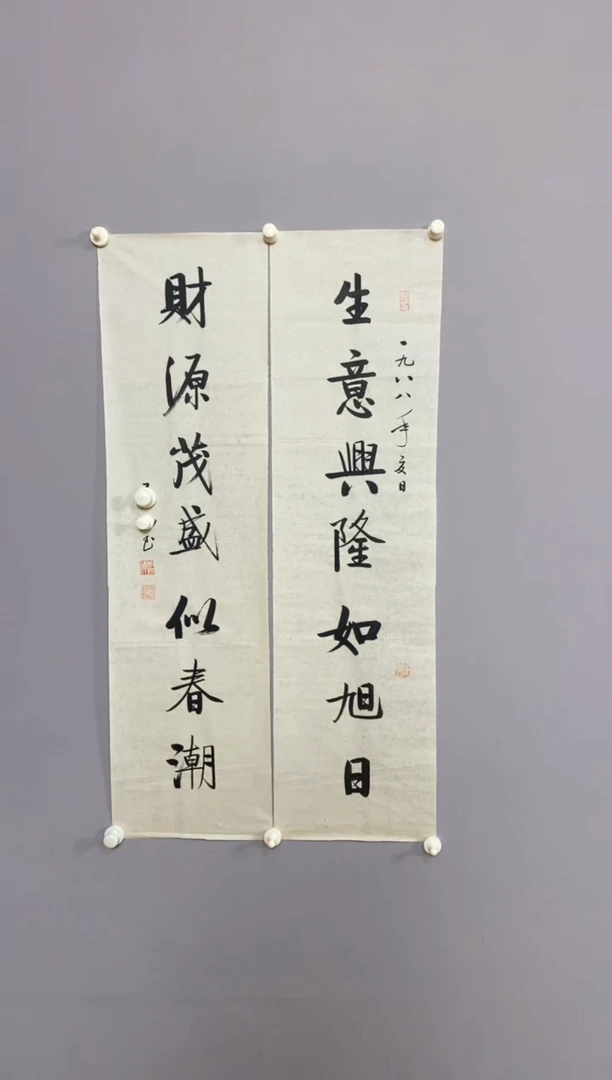 生意興隆如旭日
一九八八年夏日
財源茂盛似春潮